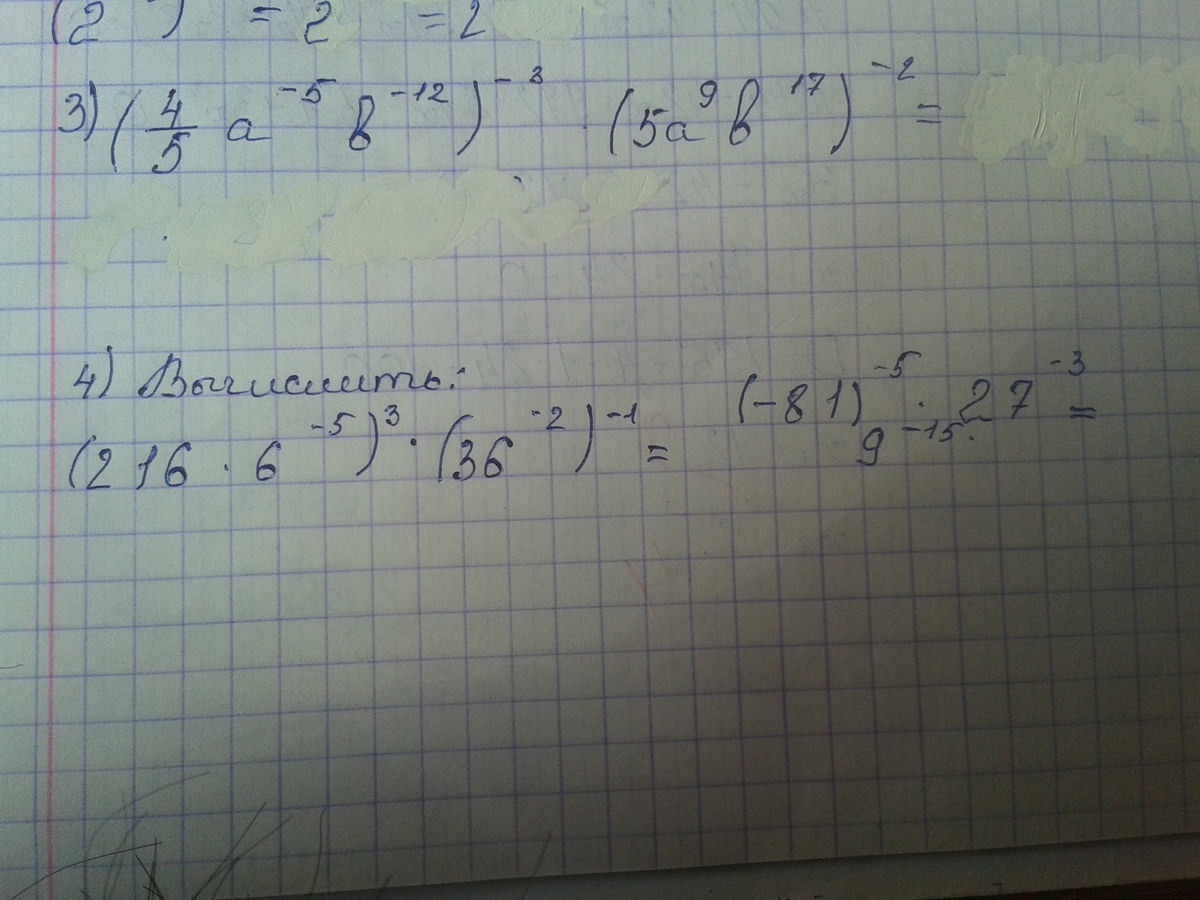 (2 ) = 2 = 2
3) (4/5 a⁻⁵ в⁻¹²)⁻³ · (5a⁹ в¹⁷)⁻² =
4) Вычислить:
(216 · 6⁻⁵)³ · (36⁻²)⁻¹ = (-81)⁻⁵ · 27⁻³ =
9⁻¹⁵ ·